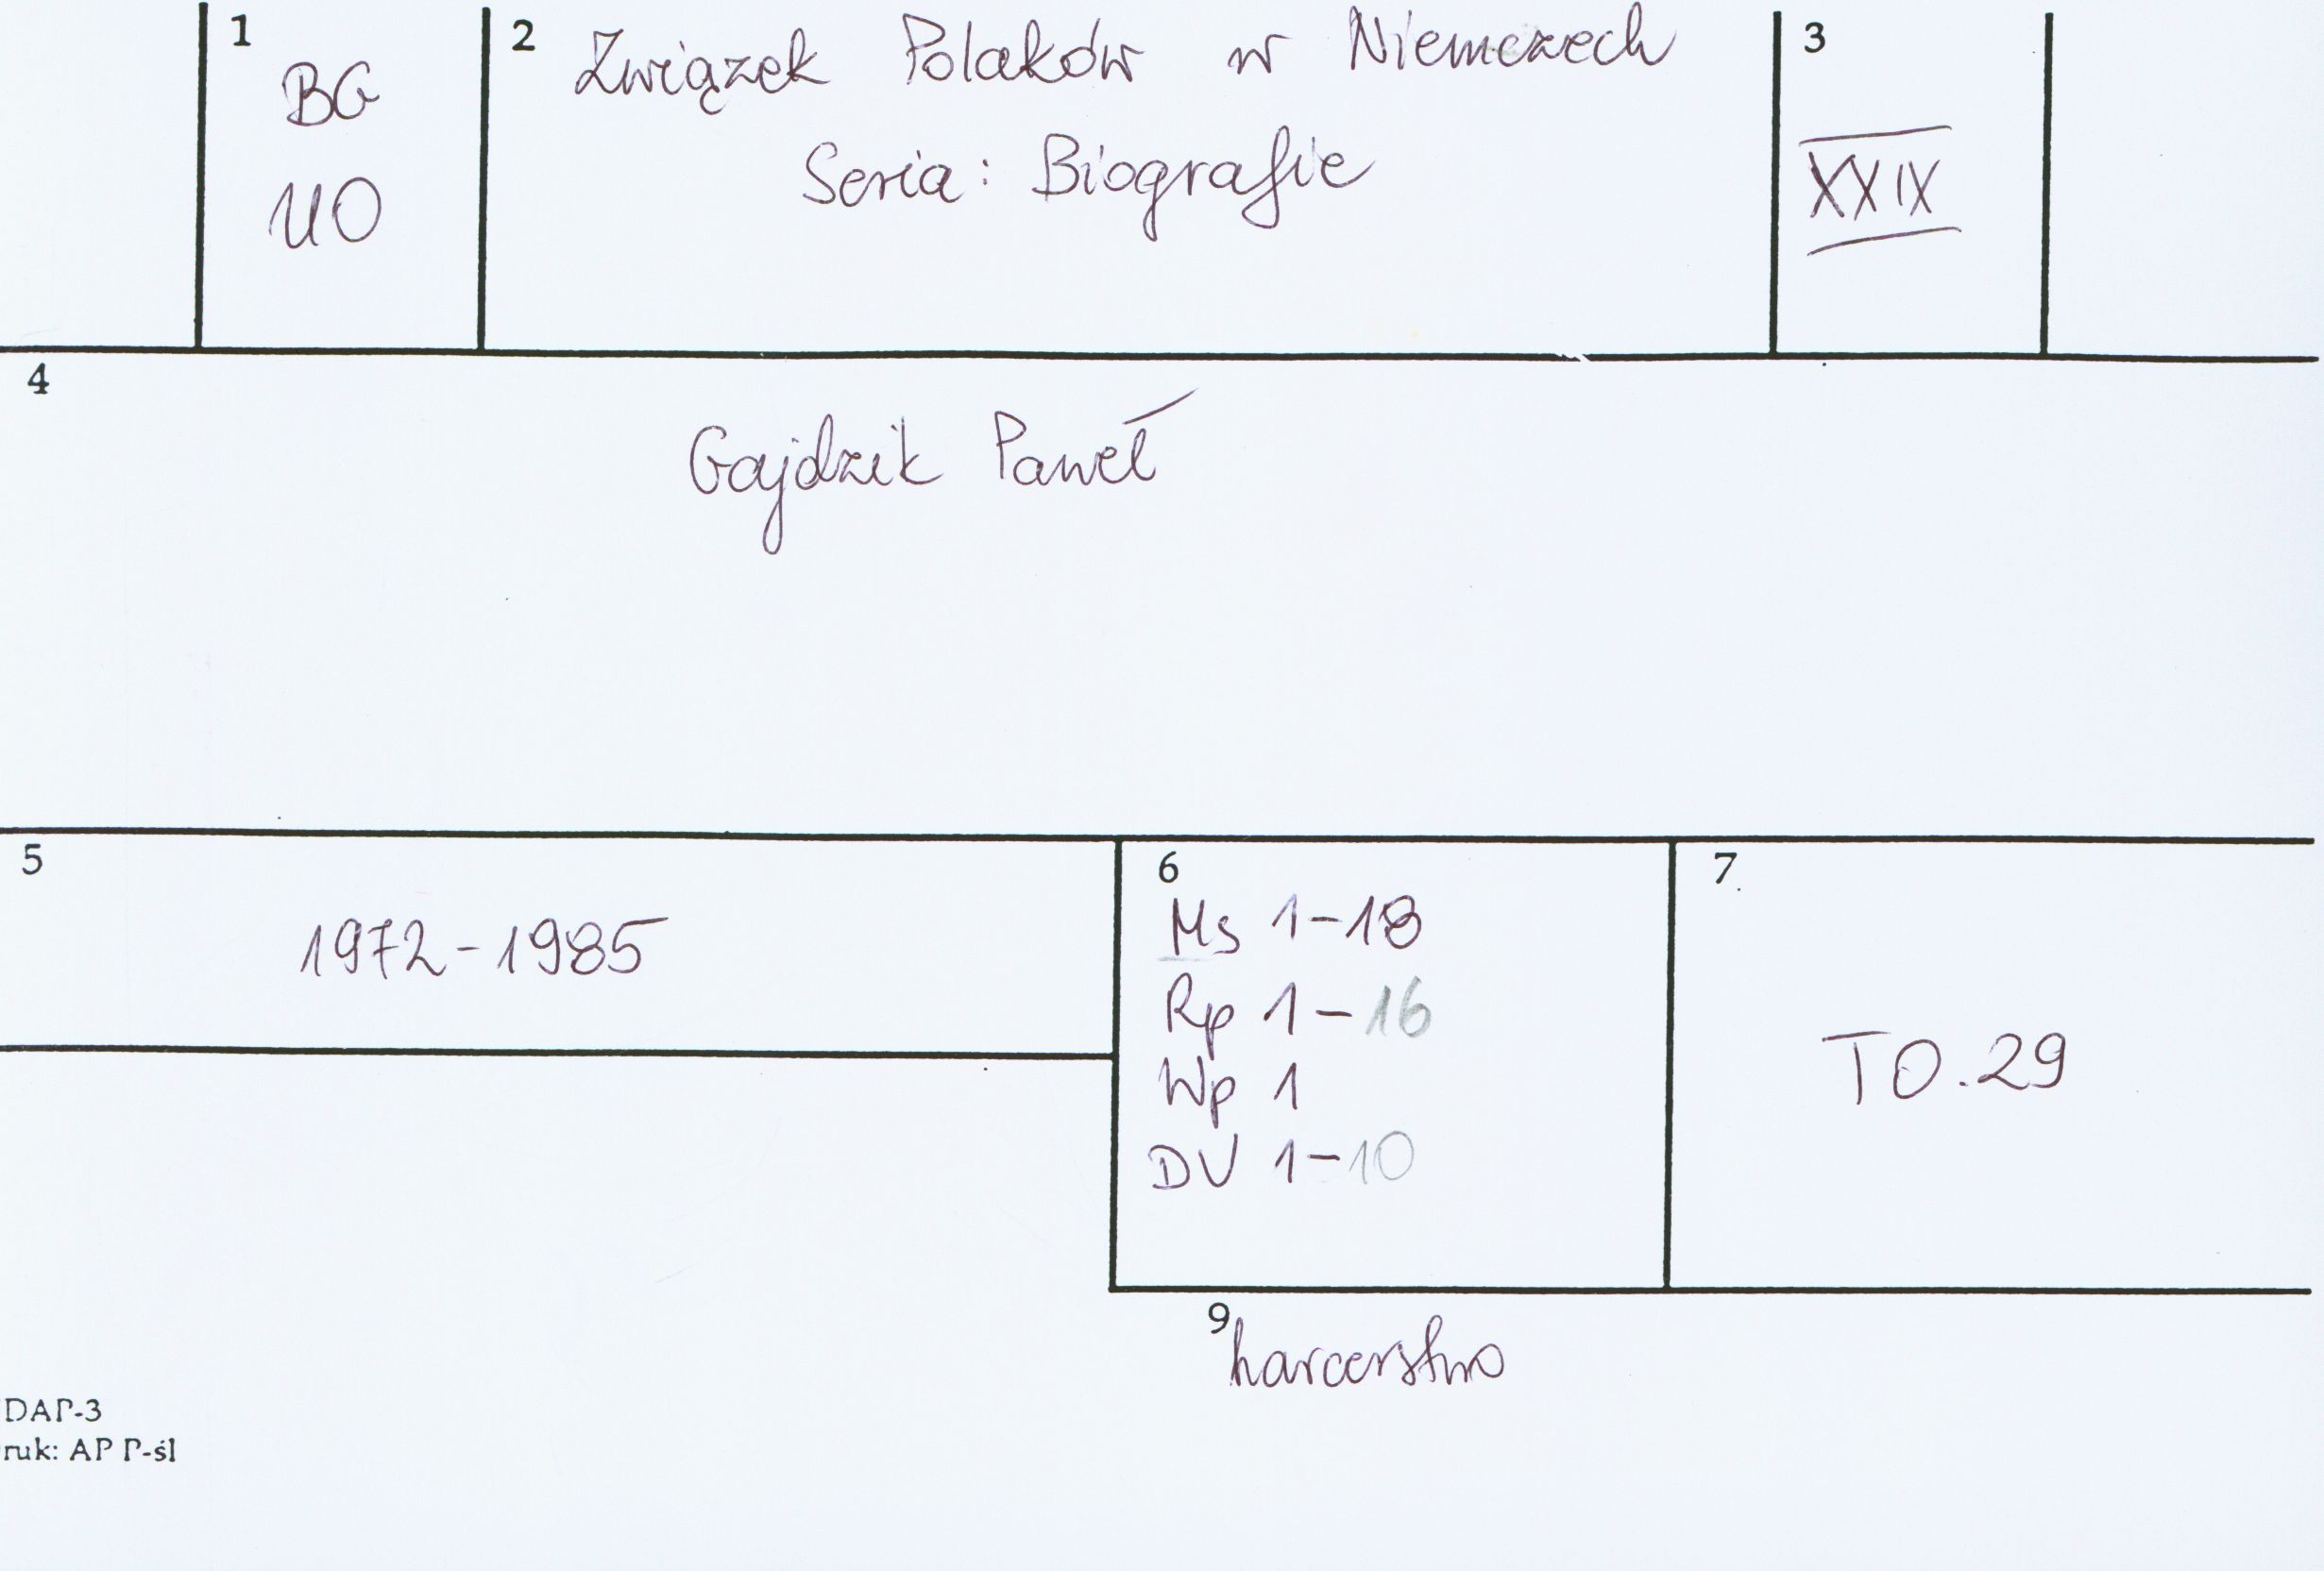 1
BG
UO
2 Związek Polaków w Niemczech
Seria: Biografie
3
XXIX
4
Gajdzik Paweł
5
1972-1985
6
Ms 1-18
Rp 1-16
Wp 1
DV 1-10
7
TO.29
9 harcerstwo
DAP-3
ruk: AP P-śl